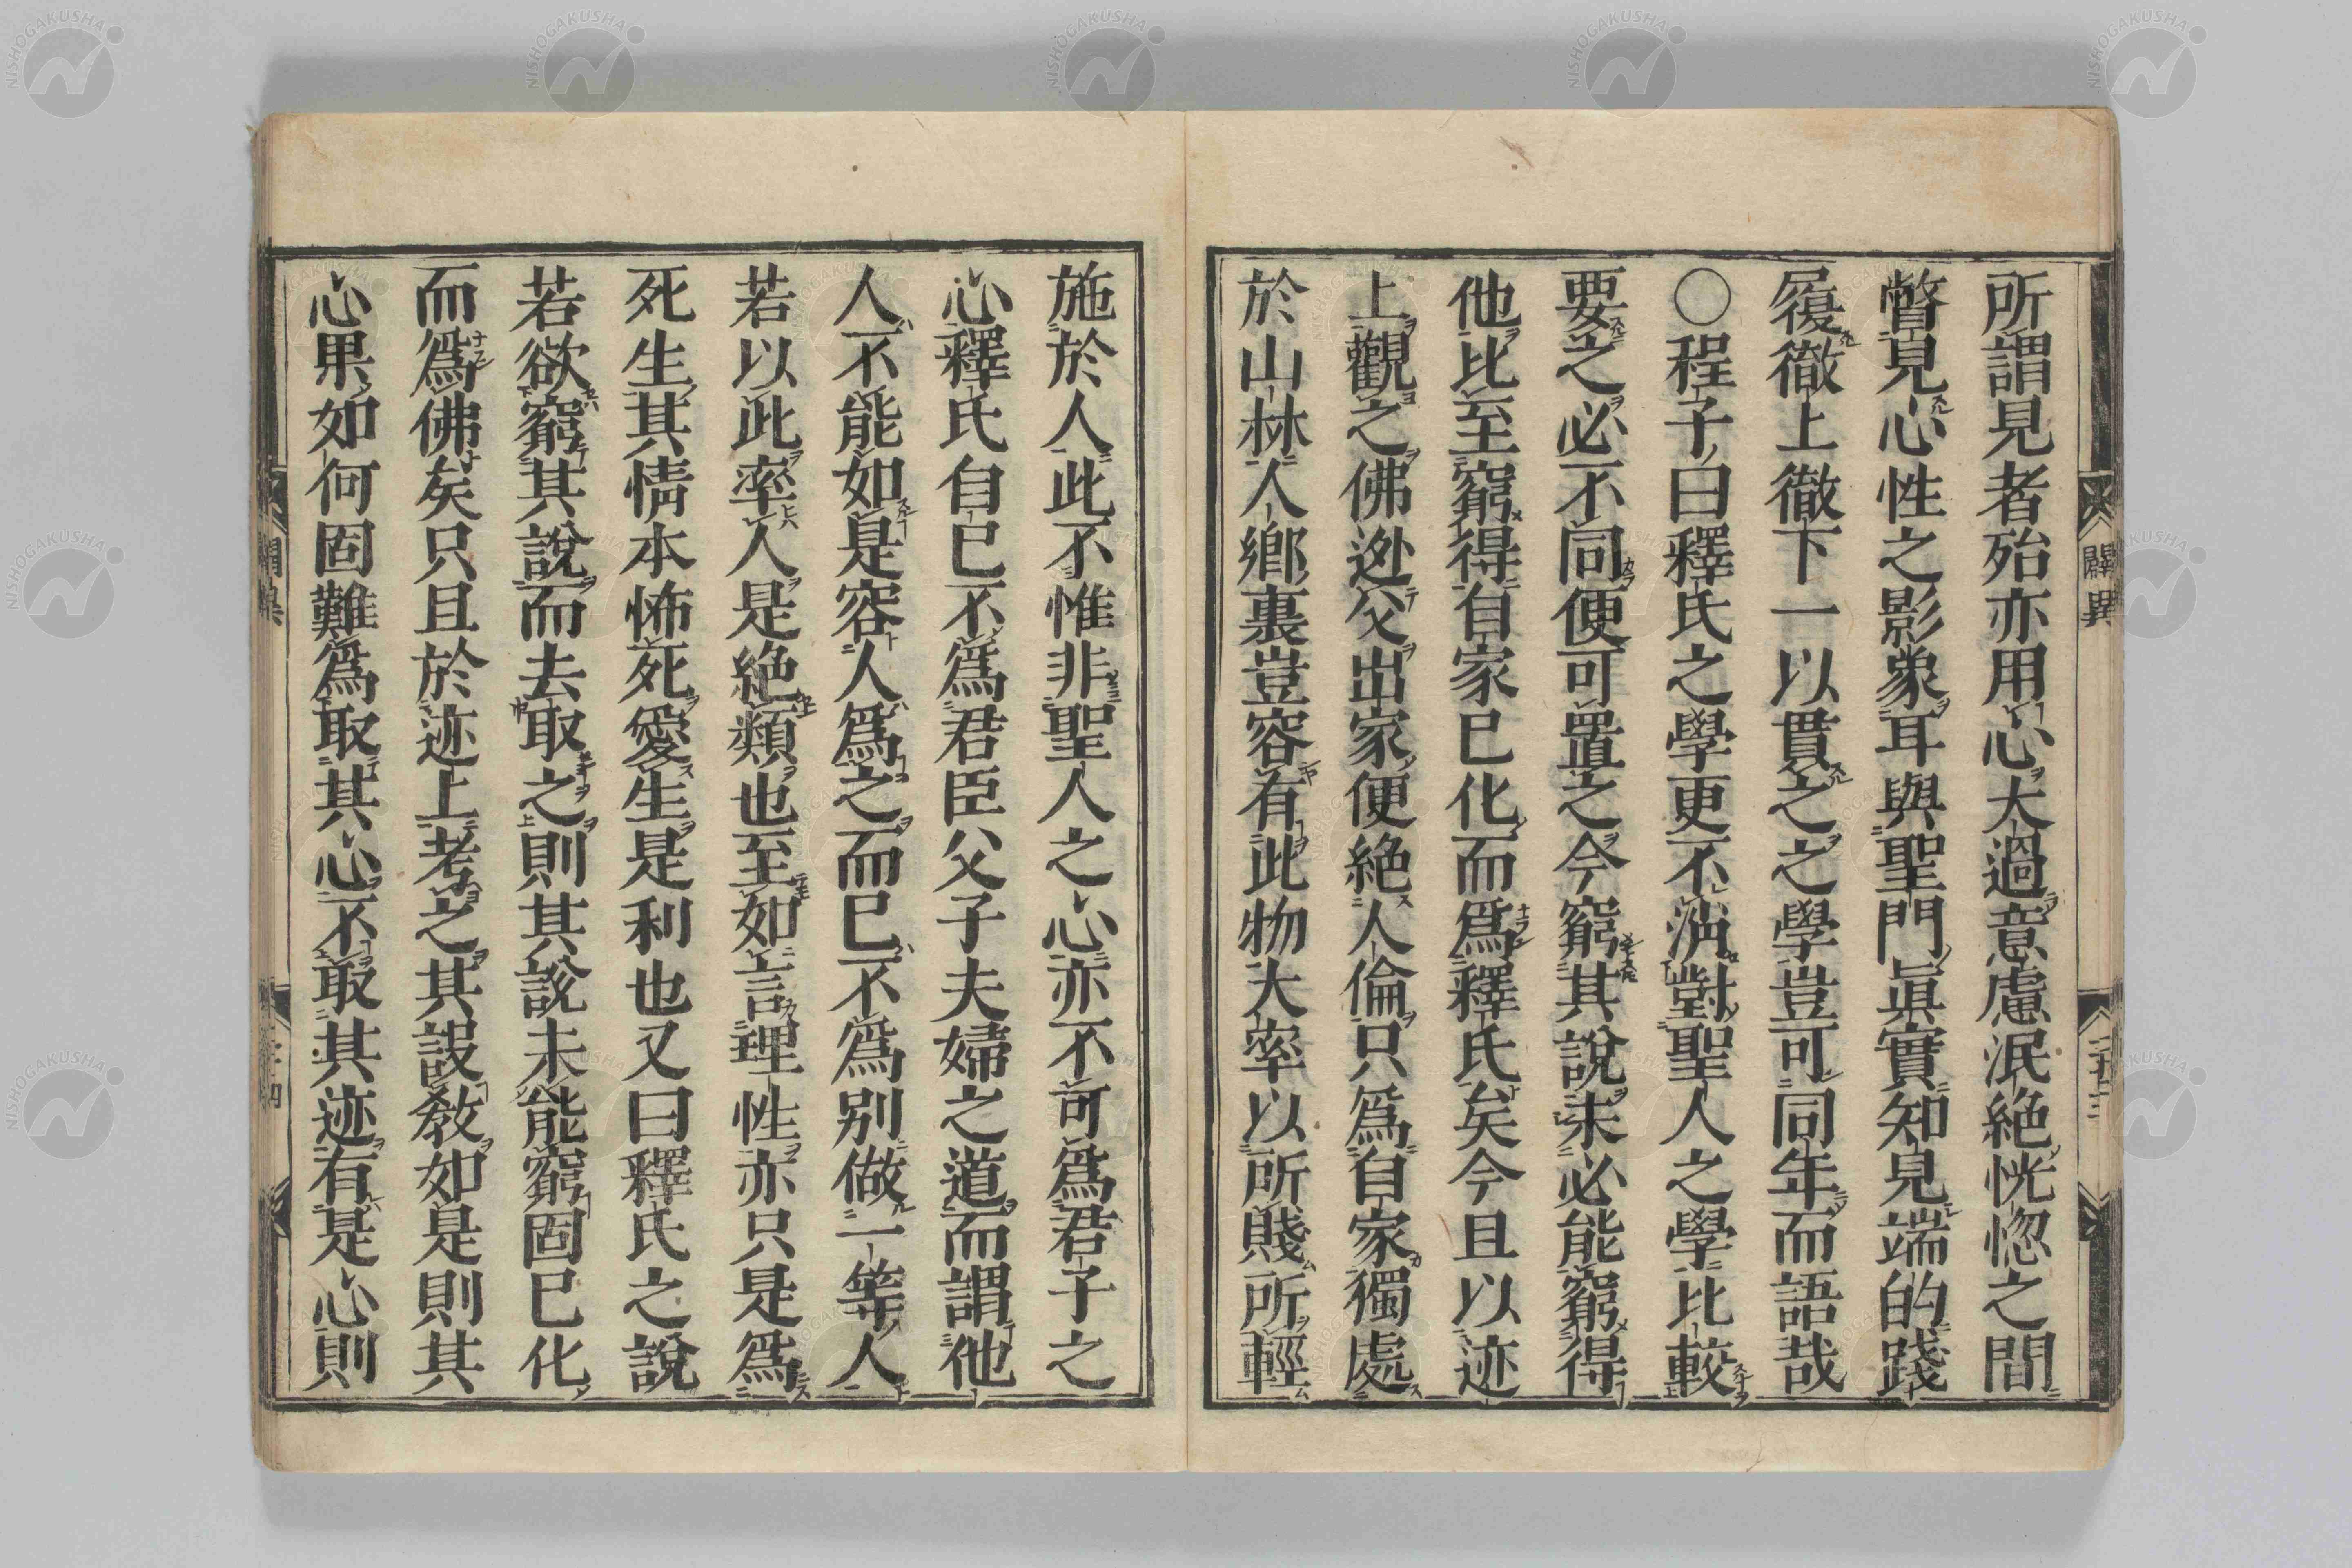 所謂見者殆亦用心太過意慮泯絶恍惚之間
瞥見心性之影象耳與聖門眞實知見端的踐
履徹上徹下一以貫之之學豈可同年而語哉
○程子曰釋氏之學更不消對聖人之學比較
要之必不同便可置之今窮其說未必能窮得
他比至窮得自家已化而爲釋氏矣今且以迹
上觀之佛逃父出家便絶人倫只爲自家獨處
於山林人鄉裏豈容有此物大率以所賤所輕
闢異
二十三
施於人此不惟非聖人之心亦不可爲君子之
心釋氏自已不爲君臣父子夫婦之道而謂他
人不能如是容人爲之而已不爲別做一等人
若以此率人是絶類也至如言理性亦只是爲
死生其情本怖死愛生是利也又曰釋氏之說
若欲窮其說而去取之則其說未能窮固已化
而爲佛矣只且於迹上考之其設敎如是則其
心果如何固難爲取其心不取其迹有是心則
NISHOGAKUSHA